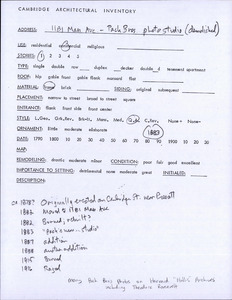 CAMBRIDGE ARCHITECTURAL INVENTORY
ADDRESS: 1181 Mass Ave - Pach Bros photo studio (demolished)
USE: residential commercial religious
STORIES: 1 2 3 4 5
TYPE: single double row duplex decker double d tenement apartment
ROOF: hip gable front gable flank mansard flat
MATERIAL: frame brick SIDING: original subsequent
PLACEMENT: narrow to street broad to street square
ENTRANCE: flank front side front center
STYLE: Q.A.
ORNAMENT: little moderate elaborate 1883
DATE: 1790 1800 10 20 30 40 50 60 70 80 90 1900 10 20 30
MAP:
REMODELING: drastic moderate minor CONDITION: poor fair good excellent
IMPORTANCE TO SETTING: detrimental none moderate great INITIALED:
DESCRIPTION:
Originally erected on Cambridge St. near Prescott
1882 Moved to 1181 Mass Ave
1882 Burned, rebuilt?
1883 "Pach's new studio"
1887 addition
addition
1915 Burned
1916 Razed
many Pach Bros photos in Harvard Archives
including Theodore Roosevelt